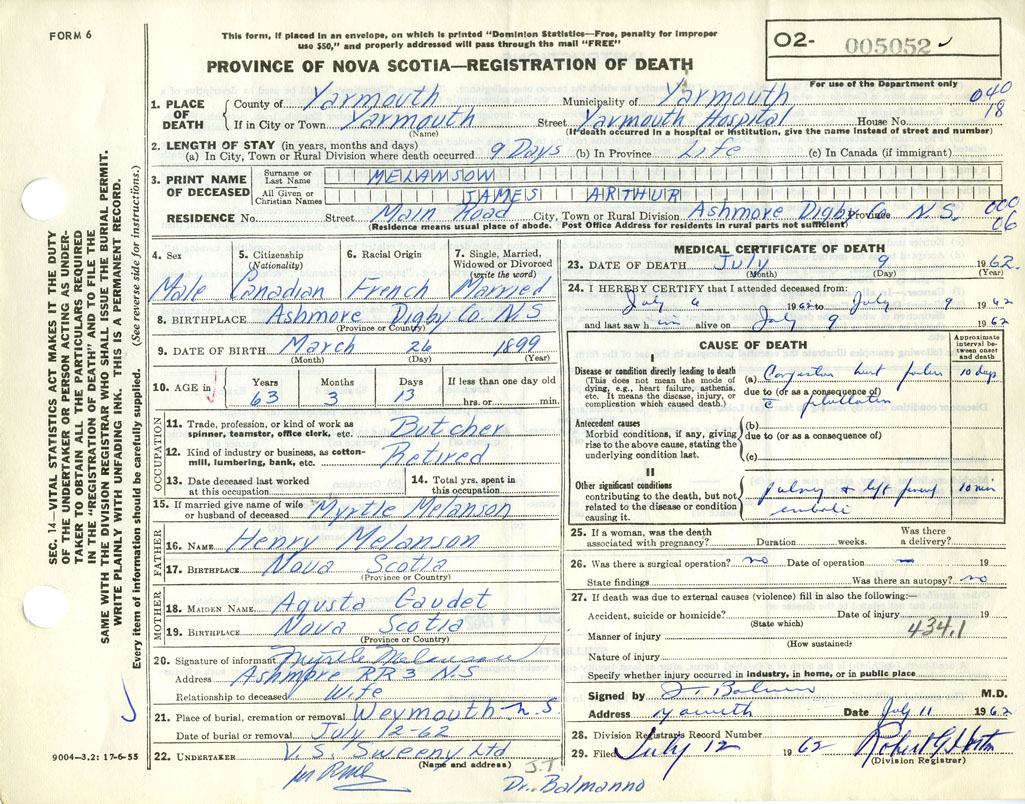 FORM 6
This form, if placed in an envelope, on which is printed "Dominion Statistics—Free, penalty for improper
use $50," and properly addressed will pass through the mail "FREE"
PROVINCE OF NOVA SCOTIA—REGISTRATION OF DEATH
O2- 005052
For use of the Department only
040
18
1. PLACE OF DEATH { County of Yarmouth Municipality of Yarmouth
If in City or Town Yarmouth Street Yarmouth Hospital House No.
(Name) (If death occurred in a hospital or institution, give the name instead of street and number)
2. LENGTH OF STAY (in years, months and days)
(a) In City, Town or Rural Division where death occurred 9 Days (b) In Province Life (c) In Canada (if immigrant)
3. PRINT NAME OF DECEASED { Surname or Last Name MELANSON
All Given or Christian Names JAMES ARTHUR
RESIDENCE No. Street Main Road City, Town or Rural Division Ashmore Digby Co Province N.S. 000
06
(Residence means usual place of abode. Post Office Address for residents in rural parts not sufficient)
4. Sex 5. Citizenship (Nationality) 6. Racial Origin 7. Single, Married, Widowed or Divorced (write the word)
Male Canadian French Married
8. BIRTHPLACE Ashmore Digby Co. N S
(Province or Country)
9. DATE OF BIRTH March 26 1899
(Month) (Day) (Year)
10. AGE in { Years Months Days If less than one day old
63 3 13 hrs. or min.
OCCUPATION
11. Trade, profession, or kind of work as spinner, teamster, office clerk, etc. Butcher
12. Kind of industry or business, as cotton-mill, lumbering, bank, etc. Retired
13. Date deceased last worked at this occupation 14. Total yrs. spent in this occupation
15. If married give name of wife or husband of deceased Myrtle Melanson
FATHER
16. NAME Henry Melanson
17. BIRTHPLACE Nova Scotia
(Province or Country)
MOTHER
18. MAIDEN NAME Agusta Gaudet
19. BIRTHPLACE Nova Scotia
(Province or Country)
20. Signature of informant Myrtle Melanson
Address Ashmore RR3 N.S
Relationship to deceased Wife
21. Place of burial, cremation or removal Weymouth N.S
Date of burial or removal July 12-62
22. UNDERTAKER V. S. Sweeny Ltd
(Name and address)
J.T.
Dr. Balmanno
MEDICAL CERTIFICATE OF DEATH
23. DATE OF DEATH July 9 1962.
(Month) (Day) (Year)
24. I HEREBY CERTIFY that I attended deceased from:
July 6 1962 to July 9 1962
and last saw him alive on July 9 1962
CAUSE OF DEATH
Approximate interval between onset and death
I
Disease or condition directly leading to death
(This does not mean the mode of dying, e.g., heart failure, asthenia, etc. It means the disease, injury, or complication which caused death.)
(a) Congestive heart failure 10 days
due to (or as a consequence of)
Antecedent causes
Morbid conditions, if any, giving rise to the above cause, stating the underlying condition last.
(b)
due to (or as a consequence of)
(c)
II
Other significant conditions
contributing to the death, but not related to the disease or condition causing it.
& left 10 min
emboli
25. If a woman, was the death associated with pregnancy? Duration weeks. Was there a delivery?
26. Was there a surgical operation? no Date of operation — 19
State findings Was there an autopsy? no
27. If death was due to external causes (violence) fill in also the following:—
Accident, suicide or homicide? Date of injury 19
(State which)
434.1
Manner of injury
(How sustained)
Nature of injury
Specify whether injury occurred in industry, in home, or in public place
Signed by J. T. Balmanno M.D.
Address Yarmouth Date July 11 1962
28. Division Registrar's Record Number
29. Filed July 12 1962
(Division Registrar)
SEC. 14—VITAL STATISTICS ACT MAKES IT THE DUTY
OF THE UNDERTAKER OR PERSON ACTING AS UNDER-
TAKER TO OBTAIN ALL THE PARTICULARS REQUIRED
IN THE "REGISTRATION OF DEATH" AND TO FILE THE
SAME WITH THE DIVISION REGISTRAR WHO SHALL ISSUE THE BURIAL PERMIT.
WRITE PLAINLY WITH UNFADING INK. THIS IS A PERMANENT RECORD.
Every item of information should be carefully supplied. (See reverse side for instructions.)
9004—3.2: 17-6-55